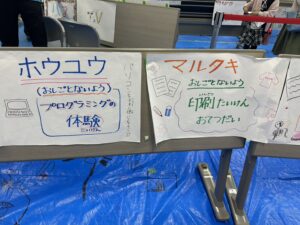 ホウユウ
(おしごとないよう)
プログラミングの
体験
たいけん
マルクキ
おしごとないよう
印刷たいけん
いんさつ
おてつだい